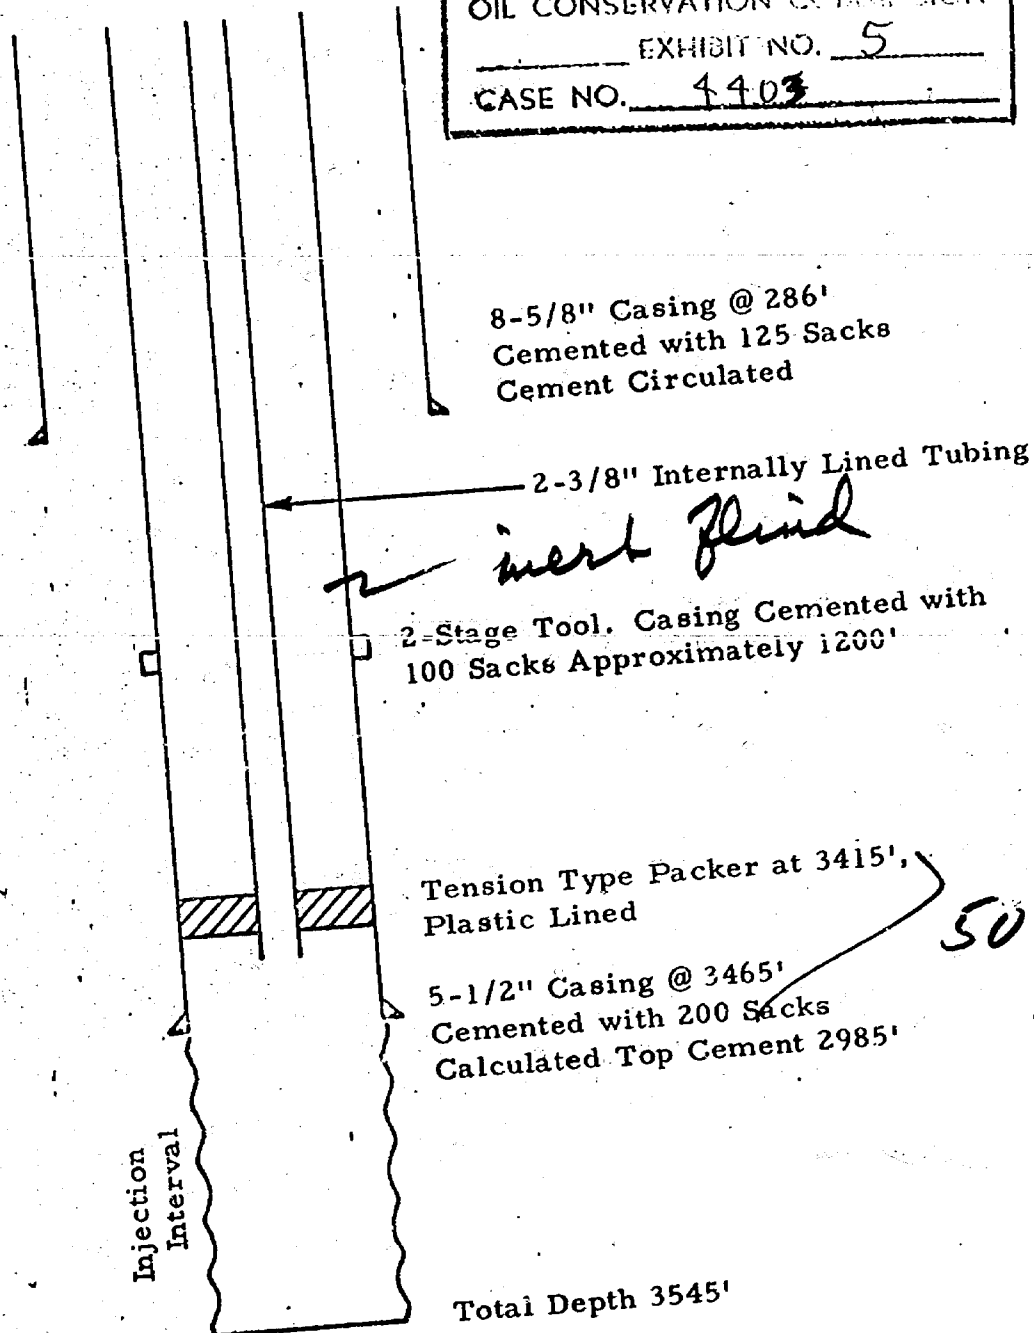 OIL CONSERVATION
EXHIBIT NO. 5
CASE NO. 4403
8-5/8" Casing @ 286'
Cemented with 125 Sacks
Cement Circulated
2-3/8" Internally Lined Tubing
inert fluid
2-Stage Tool. Casing Cemented with
100 Sacks Approximately 1200'
Tension Type Packer at 3415',
Plastic Lined
50
5-1/2" Casing @ 3465'
Cemented with 200 Sacks
Calculated Top Cement 2985'
Injection
Interval
Total Depth 3545'